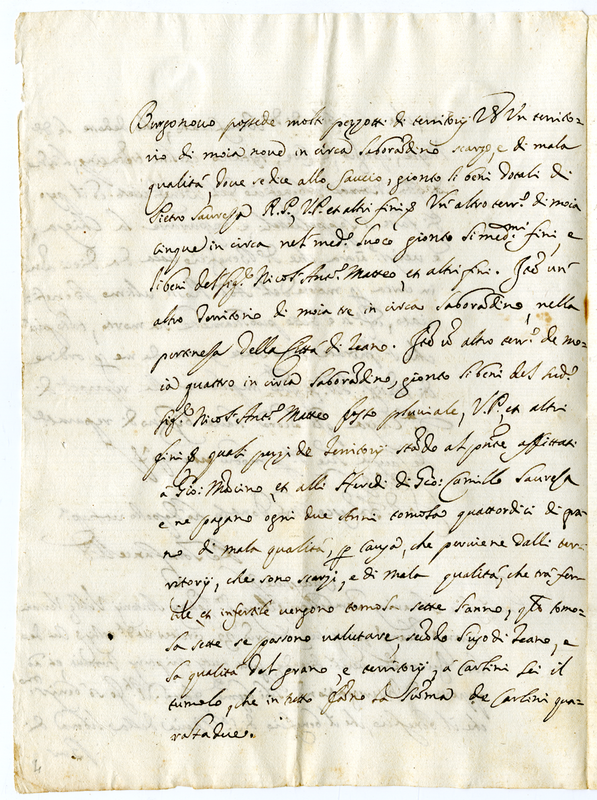 Burgonovo possede molti pezzotti di territorij V3 Un territo-
rio di moia nove in circa laboran.dino scarzo, e di mala
qualità, dove se dice allo Sauccio, gionto li beni dotali di
Pietro Sauressa R.P., V.P. et altri fini, Un'altro terr.o di moia
cinque in circa nel med.o luoco gionto li med.mi fini, e
li beni del Sig.r Nicol. Ant.o Matteo, et altri fini. Item un'
altro territorio di moia tre in circa laborandino, nella
pertenesa della Città di Teano. Item un altro terr.o de mo-
ia quattro in circa laborandino, gionto li beni del sud.o
Sig.r Nicol. Ant.o Matteo fosto pluviale, V.P. et altri
fini quali pezzi de territorij stando al pnte affittati
a Gio: Mocino, et alli Heredi di Gio: Camillo Sauressa
e ne pagano ogni due Anni tomola quattordici di gra-
no di mala qualità, p causa, che perviene dalli ter-
ritorij, che sono scarzi, e di mala qualità, che trà fer-
tile et infertile vengono tomola sette l'anno, q.le tomo-
la sette se possono valutare, secondo l'uso di Teano, e
la qualità del grano, e territorij, à Carlini sei il
tumolo, che in tutto fanno la summa de Carlini qua-
rantadue.
4